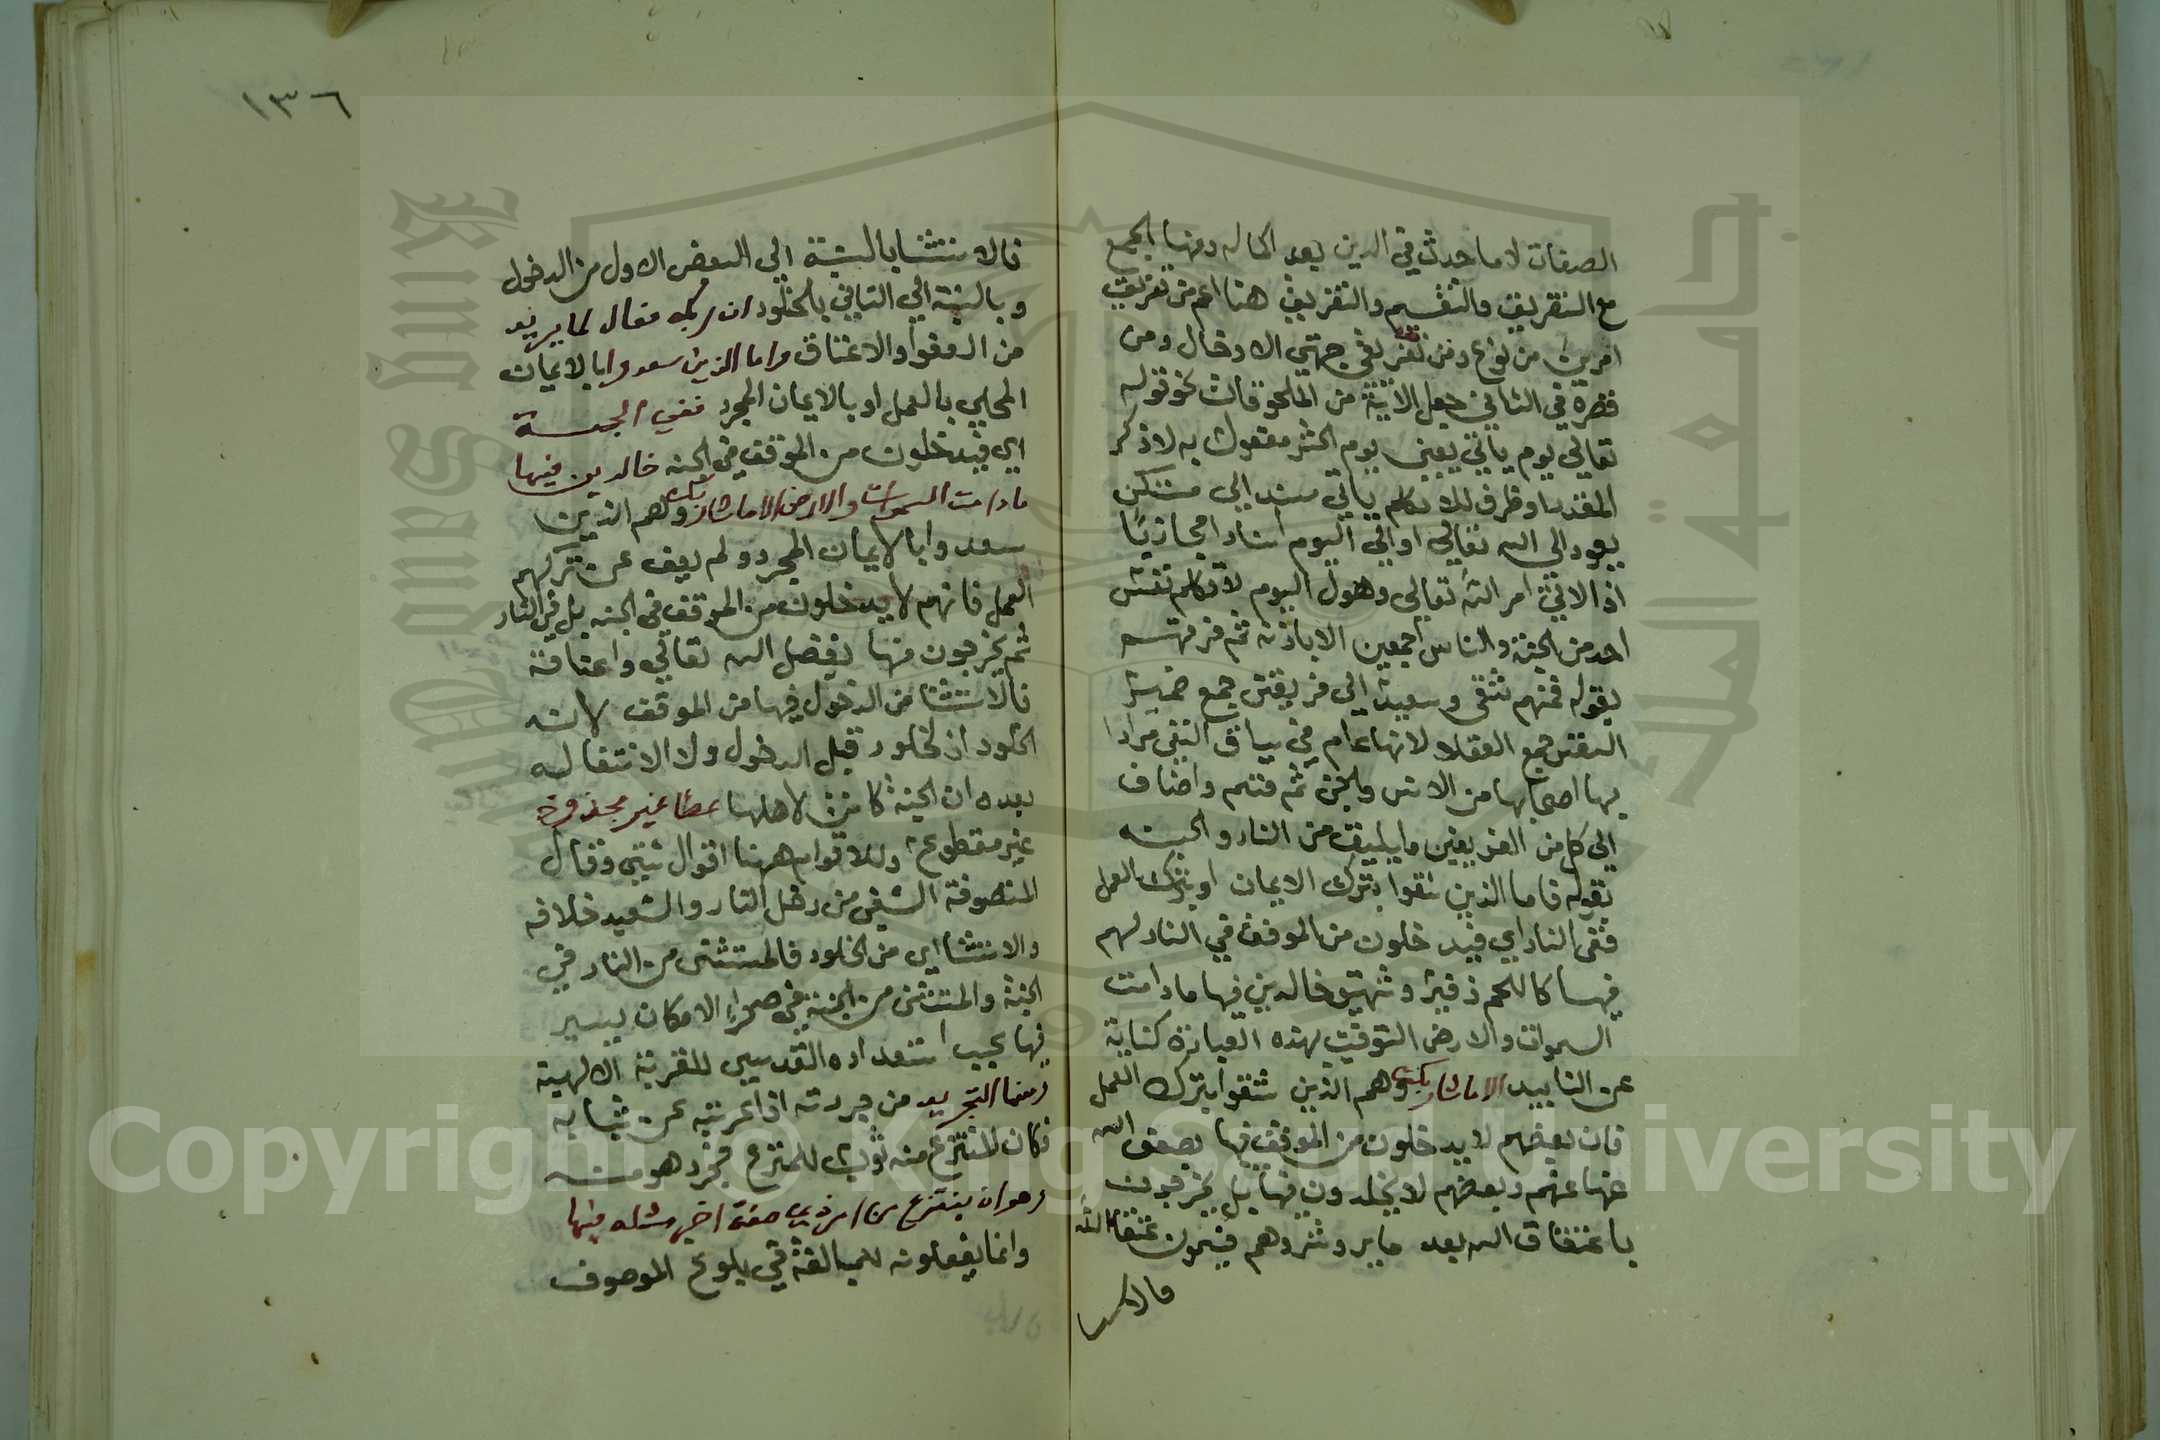 الصفات لا ما حدث في الدين بعد اكماله ومنها الجمع
مع التفريق والتقسيم والتفريق هنا اعم من تفريق
امرين من نوع ومن تفريق جهتي الادخال ومن
ثمره في الثاني جعل الاتية من الملحوقات نحو قوله
تعالي يوم ياتي يعني يوم الحشر مفعول به لاذكر
المقدر او ظرف للا تكلم ياتي مسند الي مستكن
يعود الي الله تعالي او الي اليوم اسنادا مجازيا
اذ الاتي امر الله تعالي وهول اليوم لا تكلم نفس
احد من الجنة والناس اجمعين الا باذنه ثم فرقهم
بقوله فمنهم شقي وسعيد الي فريقين جمع ضمير
النفس جمع العقلا لانها عام في سياق النفي مرادا
بها اصحابها من الانس والجن ثم قسم واضاف
الي كل من الفريقين ما يليق من النار والجنه
بقوله فاما الذين شقوا بترك الايمان او بترك العمل
ففي النار اي فيدخلون من الموقف في النار لهم
فيها كاللحم زفير وشهيق خالدين فيها ما دامت
السموات والارض التوقيت بهذه العبارة كناية
عن التابيد الا ما شا ربك وهم الذين شقوا بترك العمل
فان بعضهم لا يدخلون من الموقف فيها بعفو الله
عنها عنهم وبعضهم لا يخلدون فيها بل يخرجون
باعتاق الله بعد ما يرو شرهم فيسمون عتقا الله
فالا
١٣٦
فالاستثنا بالنسبة الي البعض الاول من الدخول
وبالنسبة الي الثاني بالخلود ان ربك فعال لما يريد
من العفو او الاعتاق واما الذين سعدوا بالايمان
المحلي بالعمل او بالايمان المجرد ففي الجنة
اي فيدخلون من الموقف في الجنه خالدين فيها
ما دامت السموات والارض الا ما شا ربك وهم الذين
سعدوا بالايمان المجرد ولم يعف عن تركهم
العمل فانهم لا يدخلون من الموقف في الجنه بل في النار
ثم يخرجون منها بفضل الله تعالي واعتاقه
فالاستثنا من الدخول فيها من الموقف لا من
الخلود اذ لا خلود قبل الدخول ولا الانتقال
بعده ان الجنة كانت لاهلها عطا غير مجذوذ
غير مقطوع وللاقوام ههنا اقوال شتي وقال
المتصوفة الشقي من دخل النار والسعيد خلافه
والاستثنا اي من الخلود فالمستثني من النار في
الجنة والمستثني من الجنة في صحراء الامكان يسير
فيها بحسب استعداده القدسي للقربة الالهية
ومنها التجريد من جردته اذا عريته عن ثيابه
فكان المنتزع منه ثوب للمنتزع فجرد هو منه
وهو ان ينتزع من امر ذي صفة اخر مثله فيها
وانما يفعلونه للمبالغة في بلوغ الموصوف
Copyright © King Saud University
King Saud University
جامعة الملك سعود